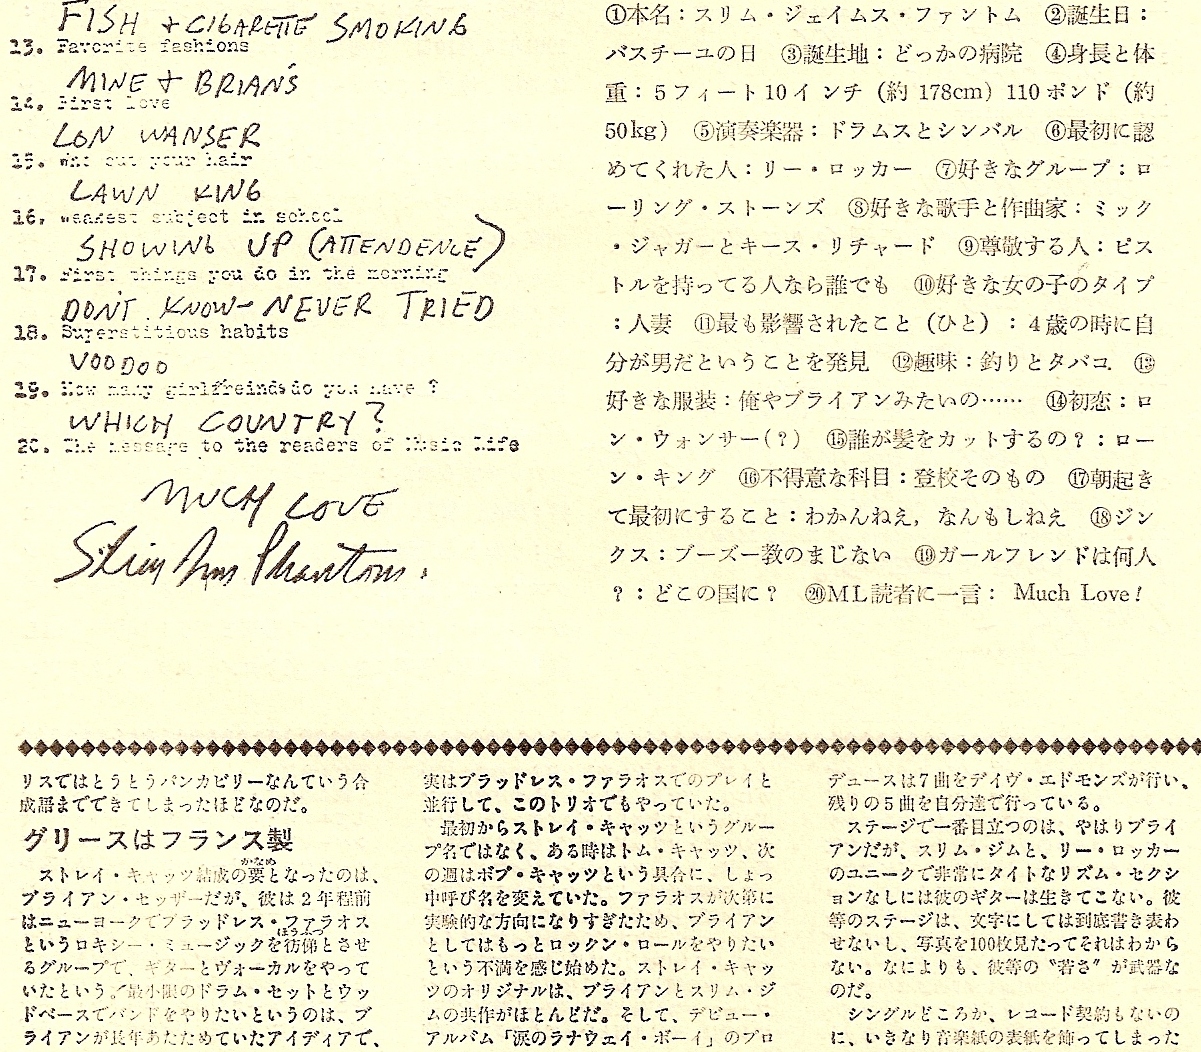 FISH + CIGARETTE SMOKING
13. Favorite fashions
MINE + BRIAN'S
14. First love
LON WANSER
15. Who cut your hair
LAWN KING
16. weakest subject in school
SHOWING UP (ATTENDENCE)
17. First things you do in the morning
DON'T KNOW - NEVER TRIED
18. Superstitious habits
VOODOO
19. How many girlfreinds do you have ?
WHICH COUNTRY?
20. The message to the readers of Music Life
MUCH LOVE
Slim Jim Phantom.
①本名：スリム・ジェイムス・ファントム　②誕生日：
バスチーユの日　③誕生地：どっかの病院　④身長と体
重：5フィート10インチ（約 178cm）110ポンド（約
50kg）　⑤演奏楽器：ドラムスとシンバル　⑥最初に認
めてくれた人：リー・ロッカー　⑦好きなグループ：ロ
ーリング・ストーンズ　⑧好きな歌手と作曲家：ミック
・ジャガーとキース・リチャード　⑨尊敬する人：ピス
トルを持ってる人なら誰でも　⑩好きな女の子のタイプ
：人妻　⑪最も影響されたこと（ひと）：4歳の時に自
分が男だということを発見　⑫趣味：釣りとタバコ　⑬
好きな服装：俺やブライアンみたいの……　⑭初恋：ロ
ン・ウォンサー(？)　⑮誰が髪をカットするの？：ロー
ン・キング　⑯不得意な科目：登校そのもの　⑰朝起き
て最初にすること：わかんねえ，なんもしねえ　⑱ジン
クス：ブーズー教のまじない　⑲ガールフレンドは何人
？：どこの国に？　⑳ML読者に一言： Much Love!
リスではとうとうパンカビリーなんていう合
成語までできてしまったほどなのだ。
グリースはフランス製
ストレイ・キャッツ結成の要となったのは、
かなめ
ブライアン・セッザーだが、彼は2年程前
はニューヨークでブラッドレス・ファラオス
ほうふつ
というロキシー・ミュージックを彷彿とさせ
るグループで、ギターとヴォーカルをやって
いたという。最小限のドラム・セットとウッ
ドベースでバンドをやりたいというのは、ブ
ライアンが長年あたためていたアイディアで、
実はブラッドレス・ファラオスでのプレイと
並行して、このトリオでもやっていた。
最初からストレイ・キャッツというグルー
プ名ではなく、ある時はトム・キャッツ、次
の週はボブ・キャッツという具合に、しょっ
中呼び名を変えていた。ファラオスが次第に
実験的な方向になりすぎたため、ブライアン
としてはもっとロックン・ロールをやりたい
という不満を感じ始めた。ストレイ・キャッ
ツのオリジナルは、ブライアンとスリム・ジ
ムの共作がほとんどだ。そして、デビュー・
アルバム「涙のラナウェイ・ボーイ」のプロ
デュースは7曲をデイヴ・エドモンズが行い、
残りの5曲を自分達で行っている。
ステージで一番目立つのは、やはりブライ
アンだが、スリム・ジムと、リー・ロッカー
のユニークで非常にタイトなリズム・セクシ
ョンなしには彼のギターは生きてこない。彼
等のステージは、文字にしては到底書き表わ
せないし、写真を100枚見たってそれはわから
ない。なによりも、彼等の〝若さ〟が武器な
のだ。
シングルどころか、レコード契約もないの
に、いきなり音楽紙の表紙を飾ってしまった